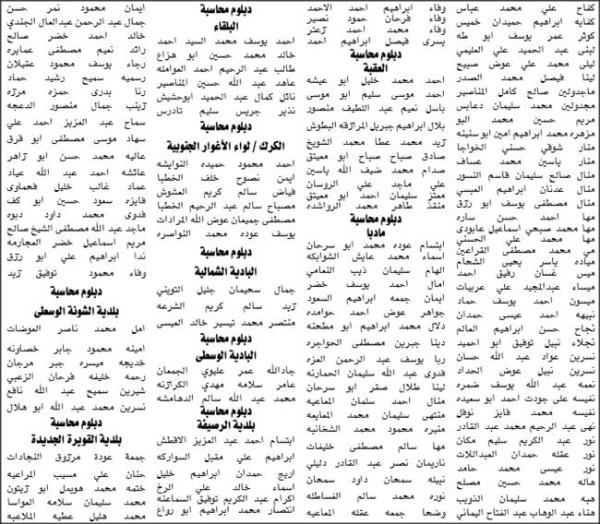 كفاح علي محمد عباس
كفايه ابراهيم حميدان خميس
كوثر عمر يوسف ابو طه
لبنى عبد الحميد علي العليمي
لينا محمد علي عوض صبيح
لينا فيصل محمد الصدر
ماجدولين صالح كامل المناصير
مجدولين محمد سليمان دعابس
مريم حسين محمد البو
مزهره محمد ابراهيم امين ابو سنينه
منار شوقي حسني الخواجا
منار ياسين محمد عساف
منال صالح سليمان قاسم النسور
منال عدنان ابراهيم العبسي
منال مصطفى يوسف ابو رزق
مها احمد حسن ساره
مها محمد صبحي اسماعيل عابودي
مها محمد علي الحسني
مي محمد مصطفى القراعين
مياده ياسر يحيى الشحام
ميس غسان رفيق احمد
ميساء عبدالمجيد علي عربيات
ميسون احمد يوسف حماد
نبيهه احمد عيسى حمدان
نجاح حسن ابراهيم العالم
نجلاء نبيل توفيق ابو احميد
نسرين عواد عبد الله حسان
نسرين نبيل عوض الحداد
نعمه عبد الله يوسف ضمره
نفيسه علي جودت احمد ابو سعيده
نفيسه محمد فايز نوفل
نهى عبد الرحيم محمد عبد القادر
نور عبد الكريم سليم مكان
نور عقله حمدان العبداللات
نور عيسى محمد حامد
هاله محمد حسين مصلح
هبه محمد سليمان الذويب
هناء عبد الوهاب عبد الفتاح اليماني
وفاء ابراهيم احمد الاحمد
وفاء فرحان حمود نصير
وفاء محمد احمد زعتر
يسرى فيصل ابراهيم احمد
دبلوم محاسبة
العقبة
احمد محمد خليل ابو عيشه
احمد موسى سليم ابو موسى
باسل نعيم عبد اللطيف منصور
بلال ابراهيم جبريل المرازقه البطوش
زيد محمد عطا محمد الشويخ
صادق صباح صباح ابو معيتق
صدام محمد ضيف الله ياسين
علي ماجد علي الروسان
معتز سليمان احمد ابو معيتق
منقذ طاهر محمد الرواشده
دبلوم محاسبة
مادبا
ابتسام عوده محمد ابو سرحان
اسماء محمد عايش الشوابكه
الهام سليمان ذيب النعامي
امال احمد يوسف خضر
ايمان جمعه ابراهيم السعود
جواهر عوض احمد حوامده
دلال محمد ابراهيم ابو مطحنه
دينا جبرين مصطفى الحواجره
ربا يوسف عبد الرحمن العزه
فدوى عبد الله سليمان الحمارنه
لينا طلال صقر ابو سرحان
منال احمد سلمان المعايعه
منتهى سليمان محمد المعايعه
منيره محمود محمد الشخانبه
مها سالم مصطفى خليفات
ناريمان نصر عبد القادر دليلي
نبيله سمحان داود سمحان
نوره محمد سالم الفساطله
وضحا جمعه عقله المناعيه
دبلوم محاسبة
البلقاء
احمد يوسف محمد السيد احمد
خالد محمد حسين ابو هزاع
طالب عبد الرحيم احمد العوامله
عاهد عبد الله حسين المناصير
نائل كمال عبد الحميد ابوحشيش
نذير جريس سليم تادرس
دبلوم محاسبة
الكرك / لواء الأغوار الجنوبية
احمد محمود حميده النوايشه
ايمن نصوح خلف الخطبا
فياض سالم كريم العشوش
مصباح سالم عبد الرحيم الخطبا
مصطفى جميعان عوض الله المرادات
يوسف عوده محمد النواصره
دبلوم محاسبة
البادية الشمالية
جمال سحيمان جليل التويني
زيد سالم كريم الشرعه
منتصر محمد تيسير خالد العيسى
دبلوم محاسبة
البادية الوسطى
جادالله عمر عليوي الجمعان
عامر سلامه مهدي الكرازنه
محمد عبد الله سالم الدهامشه
دبلوم محاسبة
بلدية الرصيفة
ابتسام احمد عبد العزيز الاقطش
ابراهيم علي مقبل السواركه
اريج حمدان ابراهيم خليل
اسماء خالد علي الرخ
اكرام عبد الكريم توفيق السماعنه
انتصار محمد ابراهيم ابو رواع
ايمان محمود نمر حسن
جمال عبد الرحمن عبد العال الجندي
خالد احمد خضر صالح
رائد نعيم مصطفى عمايره
رجاء يوسف محمود عقيلان
رسميه سميح رشيد حماد
رنا بدري حمزه مرزه
زينب جمال منصور الدعجه
سماح عبد العزيز احمد علي
سهاد موسى مصطفى ابو فرق
عاليه محمد حسن ابو زاهر
عائشه احمد عبد الله عياد
عماد غالب خليل قعماوي
فايزه سعود حسين ابو كف
فدوى محمد داود دبوه
ماجد عبد الله مصطفى الشيخ صالح
مريم اسماعيل خضر العجارمه
ندا ابراهيم علي ابو رزق
وفاء محمود توفيق زيد
دبلوم محاسبة
بلدية الشونة الوسطى
امل محمد ناصر العوضات
امينه محمود جابر خصاونه
خديجه ميسره جبر مرجان
رحمه خليفه فرحان الزعبي
شيرين سميح عبد الله نافع
نسرين محمد عبد الله ابو هلال
دبلوم محاسبة
بلدية القويرة الجديدة
جمعة عودة مرزوق النجادات
حنان علي مسيب المراعيه
ختمه محمد هويمل ابو زيتون
محمد سليمان سلامه العواسا
محمد هليل عطيه الملاعبه